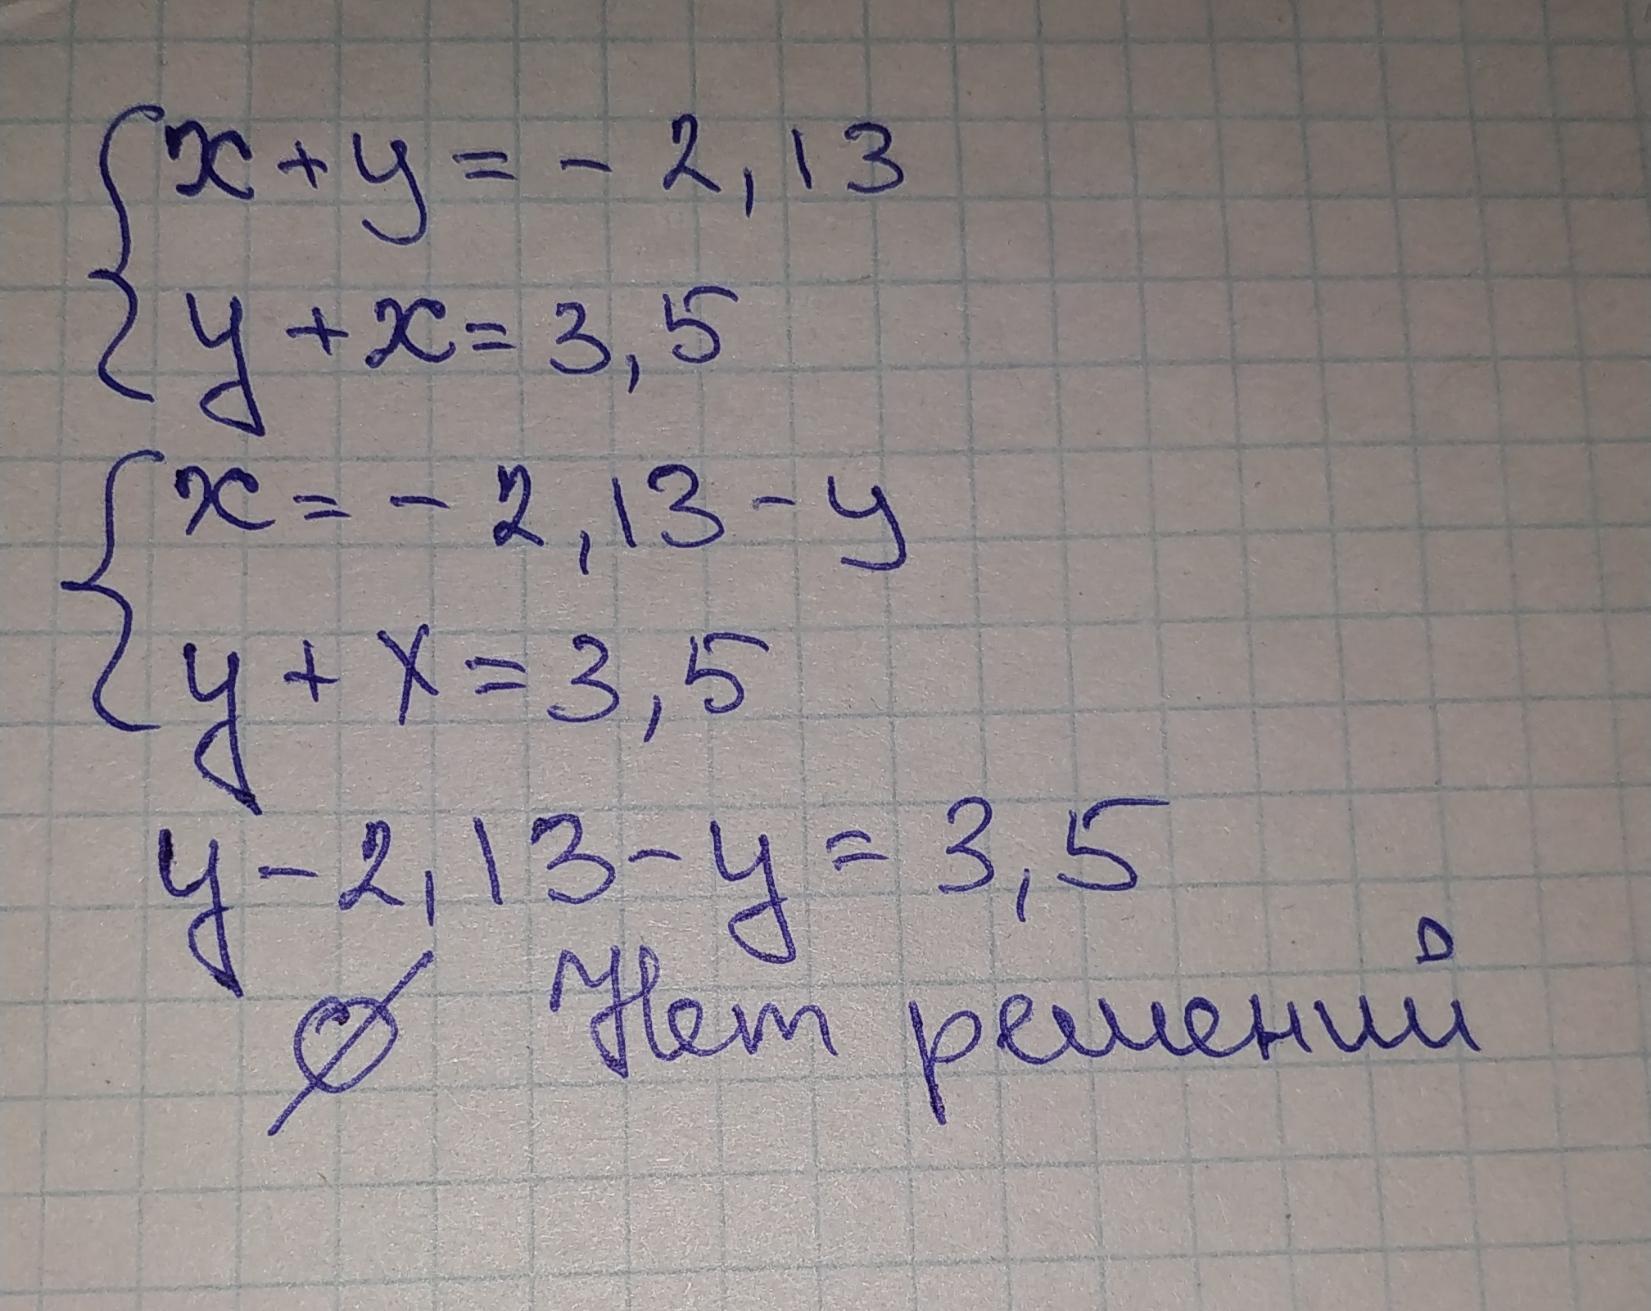 x + y = - 2,13
y + x = 3,5
x = - 2,13 - y
y + x = 3,5
y - 2,13 - y = 3,5
∅ Нет решений